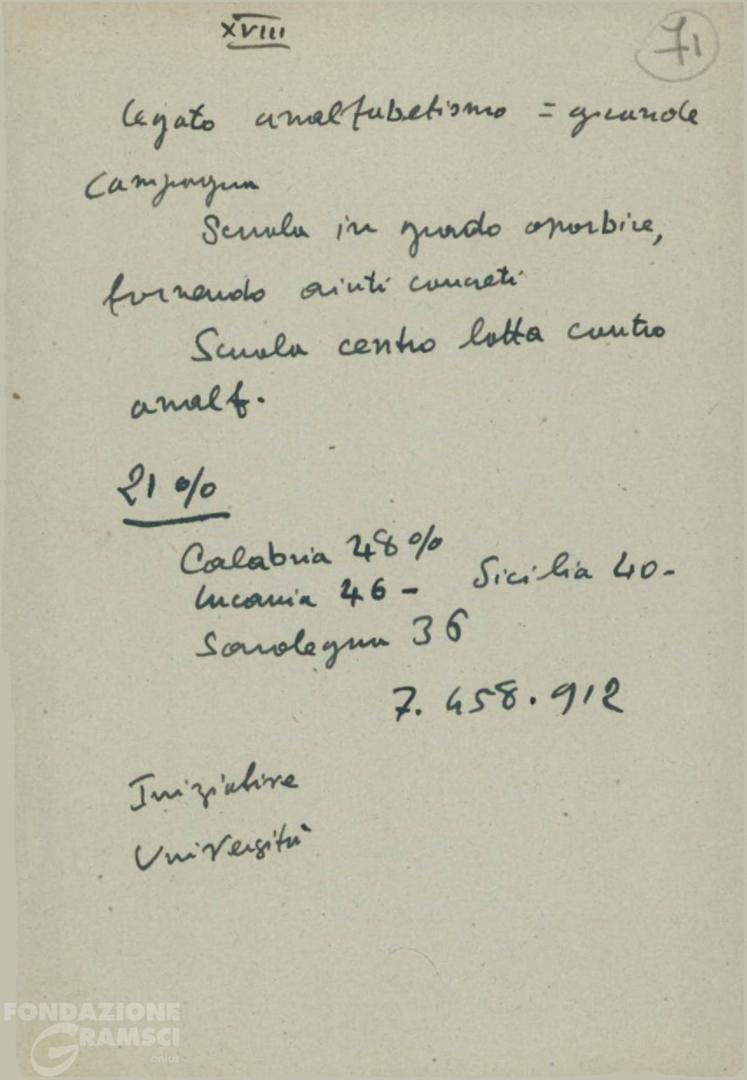 XVIII
71
legato analfabetismo = grande
campagna
Scuola in grado assorbire,
fornendo aiuti concreti
Scuola centro lotta contro
analf.
21 %
Calabria 48 %
Lucania 46 - Sicilia 40 -
Sardegna 36
7.458.912
Iniziative
Università
FONDAZIONE
GRAMSCI
onlus